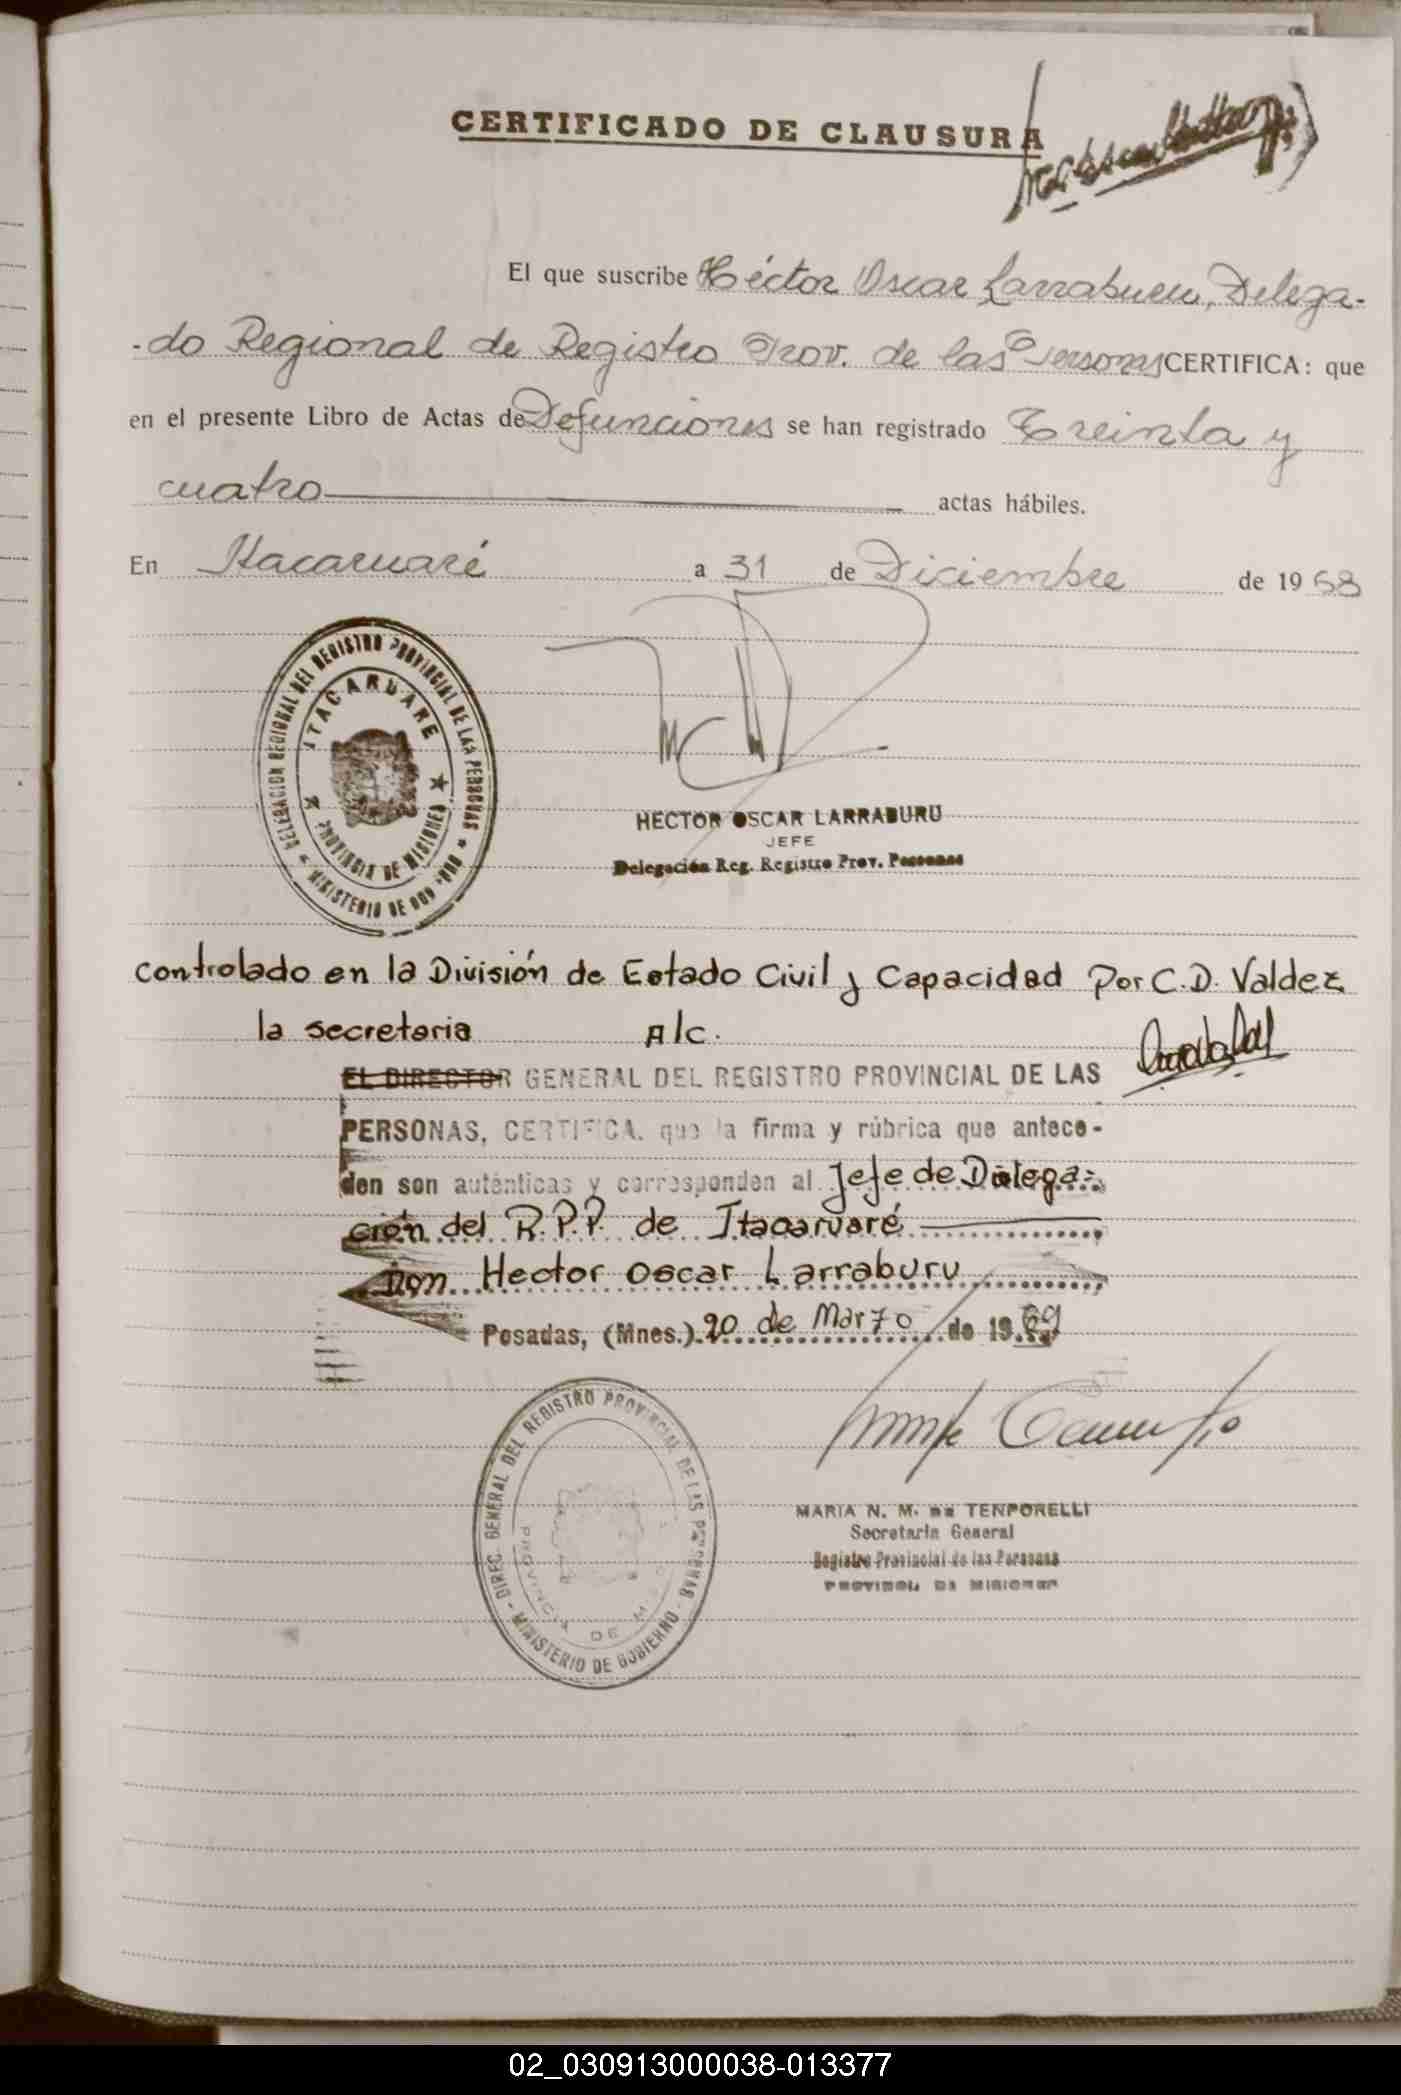 CERTIFICADO DE CLAUSURA
El que suscribe Héctor Oscar Larraburu, Delega-
-do Regional de Registro Prov. de las Personas CERTIFICA: que
en el presente Libro de Actas de Defunciones se han registrado Treinta y
cuatro actas hábiles.
En Itacaruaré a 31 de Diciembre de 1968
DELEGACION REGIONAL DEL REGISTRO PROVINCIAL DE LAS PERSONAS
ITACARUARE
PROVINCIA DE MISIONES
MINISTERIO DE GOB.
HECTOR OSCAR LARRABURU
JEFE
Delegación Reg. Registro Prov. Personas
Controlado en la División de Estado Civil y Capacidad Por C.D. Valdez
la secretaria A/c.
EL DIRECTOR GENERAL DEL REGISTRO PROVINCIAL DE LAS
PERSONAS, CERTIFICA, que la firma y rúbrica que antece-
den son auténticas y corresponden al Jefe de Delega-
ción del R.P.P. de Itacaruaré
Don Hector Oscar Larraburu
Posadas, (Mnes.) 20 de Marzo de 1969
DIREC. GENERAL DEL REGISTRO PROVINCIAL DE LAS PERSONAS - MINISTERIO DE GOBIERNO -
PROVINCIA DE
MARIA N. M. DE TENPORELLI
Secretaria General
Registro Provincial de las Personas
PROVINCIA DE MISIONES
02_030913000038-013377